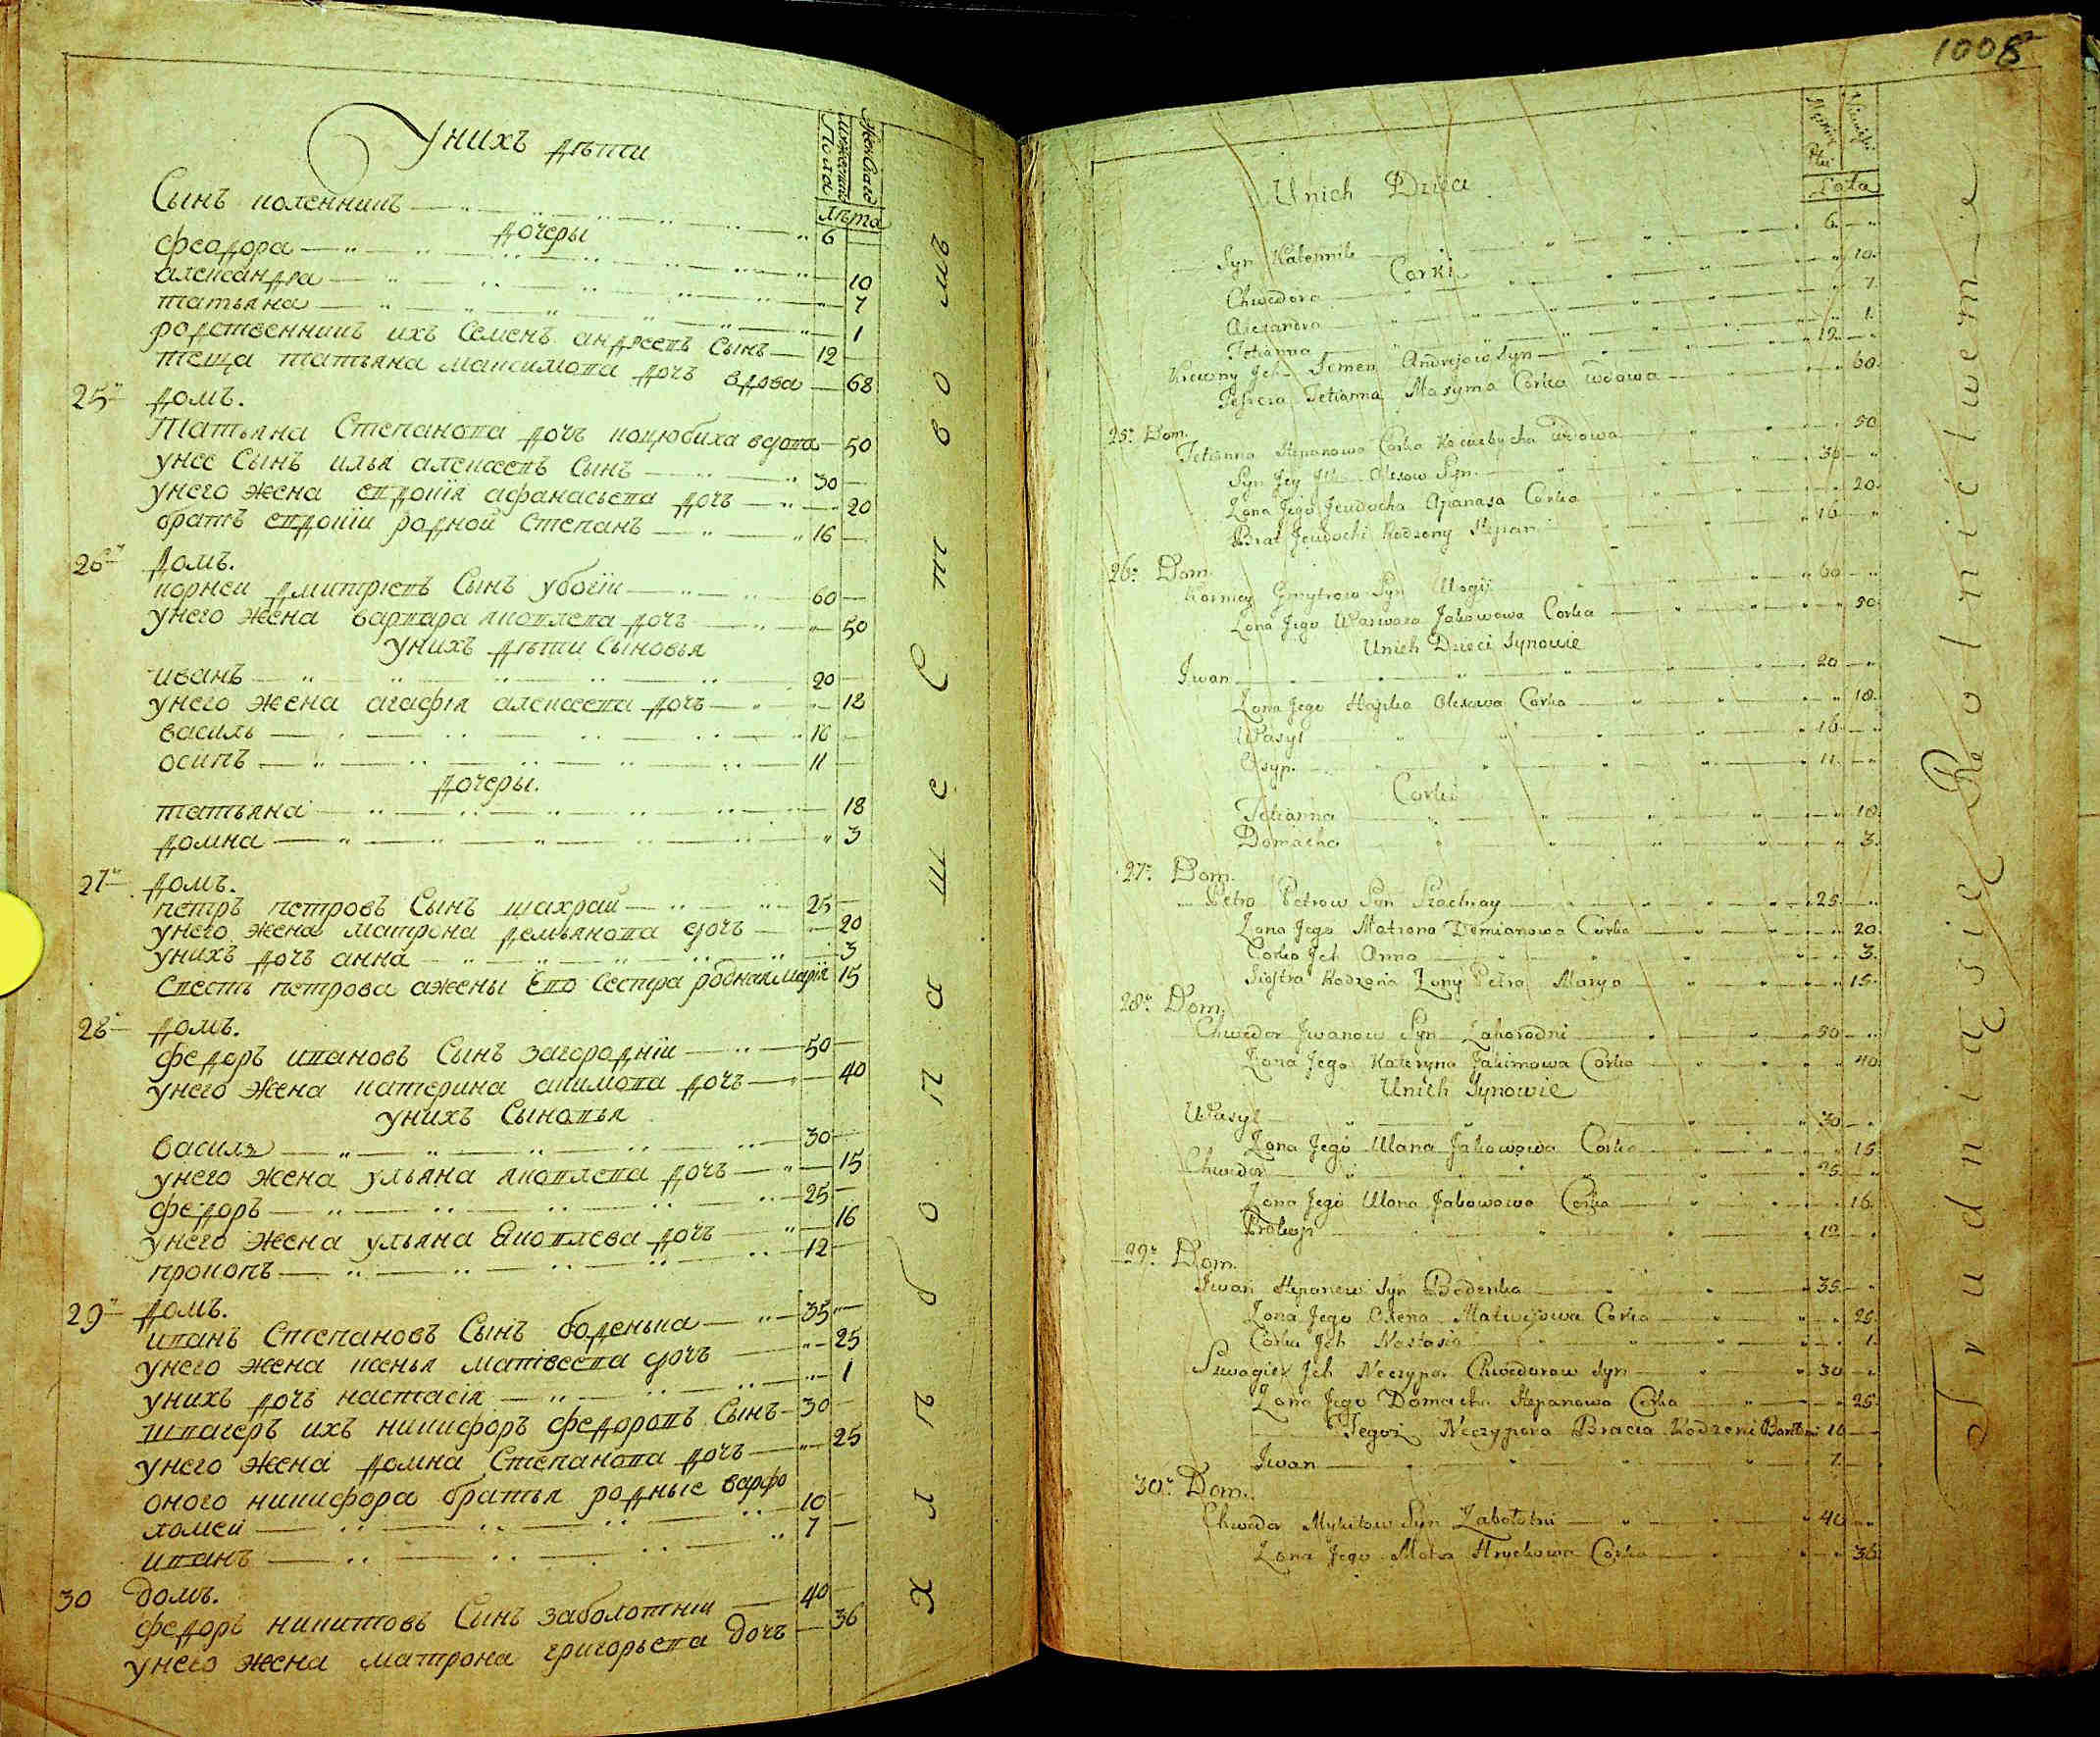 Унихъ дѣти
Женскаго
Мужескаго
Пола
Лѣта
Сынъ каленникъ 6
дочеры
феодора 10
александра 7
татьяна 1
родственникъ ихъ Семенъ андреевъ Сынъ 12
теща татьяна максимова дочъ вдова 68
25й домъ.
Татьяна Степанова дочъ коцюбиха вдова 50
унее Сынъ илья алексеевъ Сынъ 30
унего жена евдокія афанасьева дочъ 20
братъ евдокіи родной Степанъ 16
26й домъ.
корнеи дмитріевъ Сынъ убогіи 60
унего жена варвара яковлева дочъ 50
унихъ дѣти Сыновья
иванъ 20
унего жена агафія алексеева дочъ 18
василь 16
осипъ 11
дочеры.
татьяна 18
домна 3
27й домъ.
петръ петровъ Сынъ шахрай 25
унего жена матрона демьянова дочъ 20
унихъ дочъ анна 3
Свесть петрова ажены Его Сестра родная марія 15
28й домъ.
федоръ ивановъ Сынъ загородніи 50
унего жена катерина акимова дочъ 40
унихъ Сыновья
василь 30
унего жена ульяна яковлева дочъ 15
федоръ 25
унего жена ульяна Яковлева дочъ 16
прокопъ 12
29й домъ.
иванъ Степановъ Сынъ боденька 35
унего жена ксенья матвеева дочъ 25
унихъ дочъ настасія 1
швагеръ ихъ никифоръ федоровъ Сынъ 30
унего жена домна Степанова дочъ 25
оного никифора братья родные варфо
ломей 10
иванъ 7
30 домъ.
федоръ никитовъ Сынъ заболотніи 40
унего жена матрона григорьева дочъ 36
1008
Unich Dzieci
Lata
Syn Kalennik 6
Corki
Chwedora 10
Alexandra 7
Tetianna 1
Krewny Jch Semen Andrejow Syn 12
Teszcza Tetianna Maxyma Corka wdowa 60
25. Dom.
Tetianna Stepanowa Corka Kociubycha wdowa 50
Syn Jey Jlko Olexow Syn 30
Zona Jego Jeudocha Apanasa Corka 20
Brat Jeudochi Rodzony Stepan 16
26. Dom.
Korniey Gmytrow Syn Ubogij 60
Zona Jego Warwara Jakowowa Corka 50
Unich Dzieci Synowie
Jwan 20
Zona Jego Hapka Olexowa Corka 18
Wasyl 16
Osyp 11
Corki
Tetianna 18
Domacha 3
27. Dom.
Petro Petrow Syn Szachray 25
Zona Jego Matrona Demianowa Corka 20
Corka Jch Anna 3
Siostra Rodzona Zony Petra Marya 15
28. Dom.
Chwedor Jwanow Syn Zahorodni 50
Zona Jego Kateryna Jakimowa Corka 40
Unich Synowie
Wasyl 30
Zona Jego Ulana Jakowowa Corka 15
Chwedor 25
Zona Jego Ulana Jakowowa Corka 16
Prokop 12
29. Dom.
Jwan Stepanow Syn Bodenka 35
Zona Jego Oxena Matwijowa Corka 25
Corka Jch Nastasia 1
Szwagier Jch Neczypor Chwedorow Syn 30
Zona Jego Domacha Stepanowa Corka 25
Tegoz Neczypora Bracia Rodzeni 10
Jwan 7
30. Dom.
Chwedor Mykitow Syn Zabolotni 40
Zona Jego Motra Hryckowa Corka 36